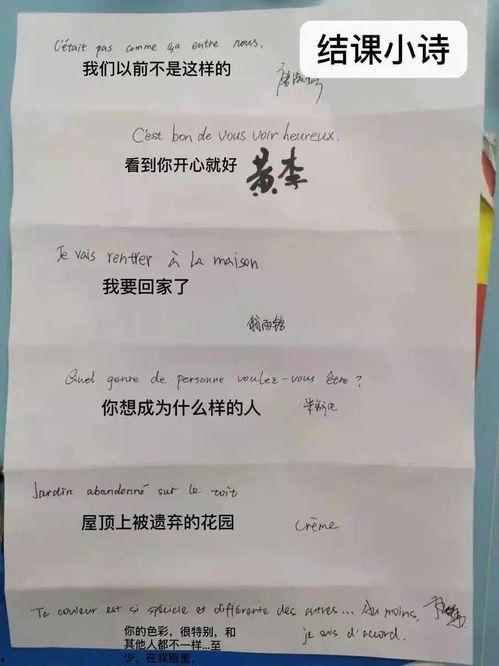 结课小诗
C'était pas comme ça entre nous.
我们以前不是这样的
C'est bon de vous voir heureux.
看到你开心就好
黄李
Je vais rentrer à la maison
我要回家了
Quel genre de personne voulez-vous être ?
你想成为什么样的人
Jardin abandonné sur le toit
屋顶上被遗弃的花园
Crème
Ta couleur est si spéciale et différente des autres... Au moins,
je suis d'accord.
你的色彩，很特别，和
其他人都不一样...至
少，在我眼里，